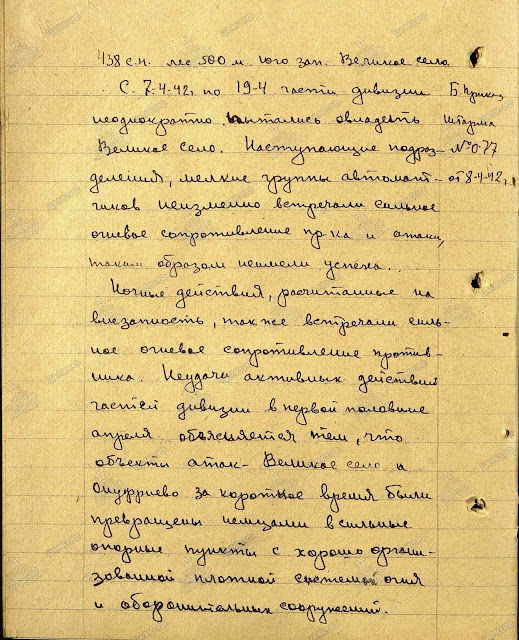 438 с.п. лес 500 м. юго зап. Великое село.
С 7-4-42г по 19-4 части дивизии
неоднократно пытались овладеть
Великое село. Наступающие подраз-
деления, мелкие группы автомат-
чиков неизменно встречали сильное
огневое сопротивление пр-ка и атаки,
таким образом неимели успеха.
Ночные действия, расчитанные на
внезапность, также встречали силь-
ное огневое сопротивление против-
ника. Неудачи активных действий
частей дивизии в первой половине
апреля объясняется тем, что
объекты атак - Великое село и
Онуфриево за короткое время были
превращены немцами в сильные
опорные пункты с хорошо органи-
зованной плотной системой огня
и оборонительных сооружений.
Б. приказ
Штарма
№ 0.77
от 8-4-42г.